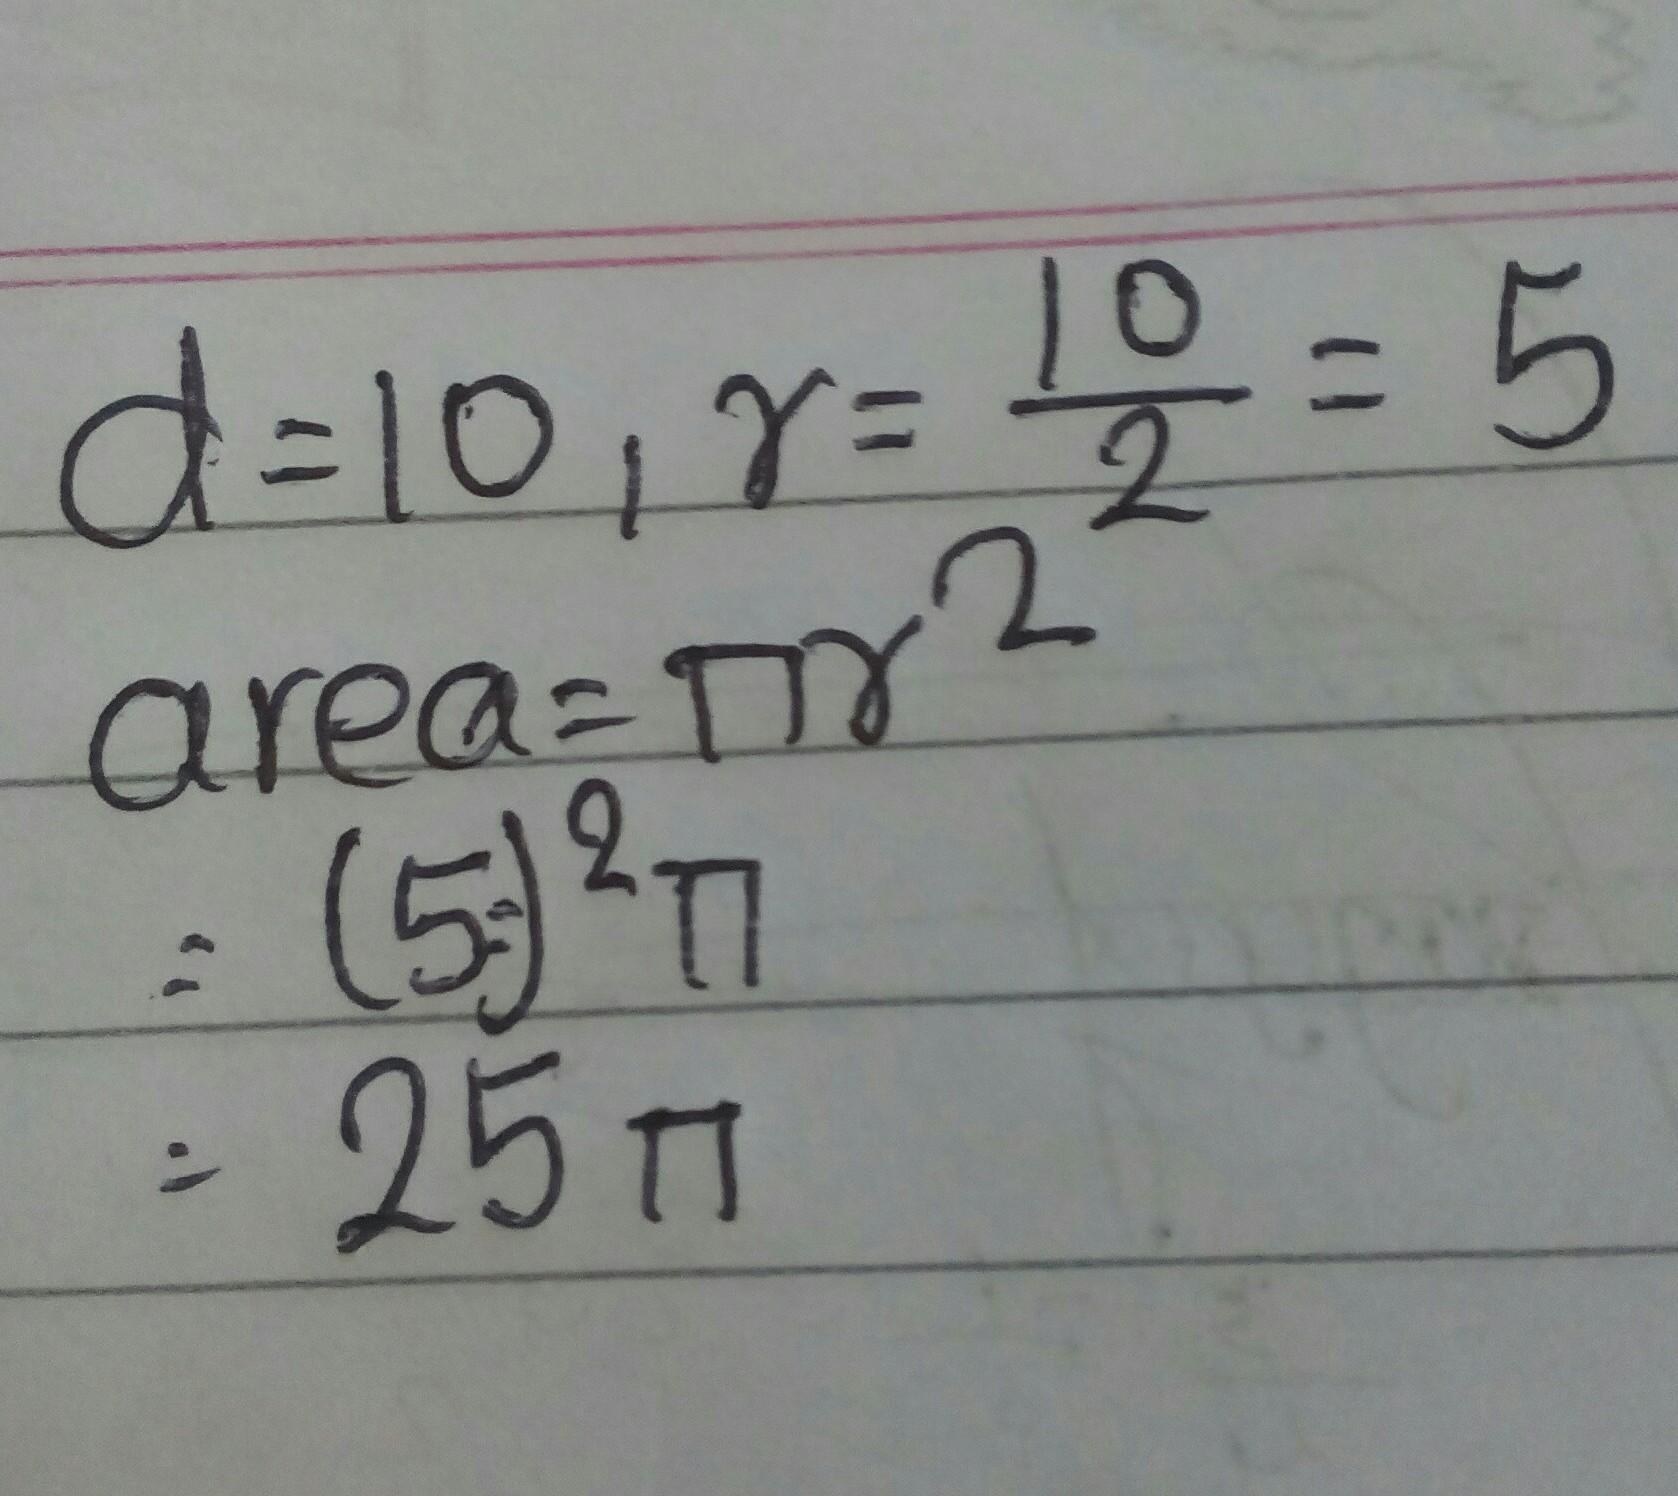 d=10, r= 10/2 = 5
area= πr²
= (5)²π
= 25π